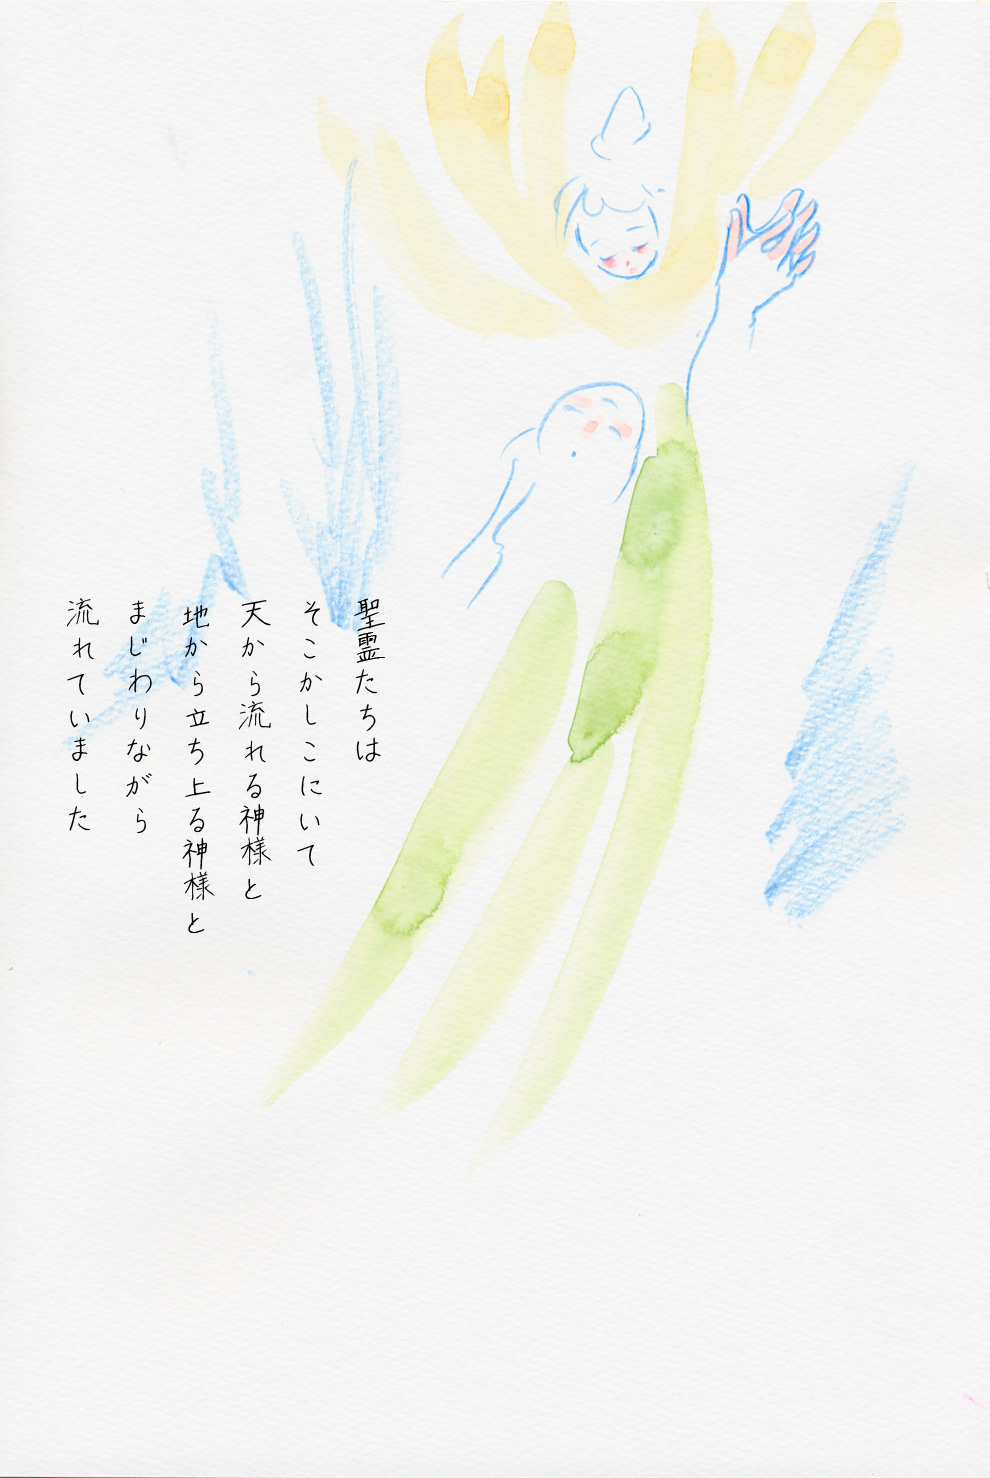 聖霊たちは
そこかしこにいて
天から流れる神様と
地から立ち上る神様と
まじわりながら
流れていました